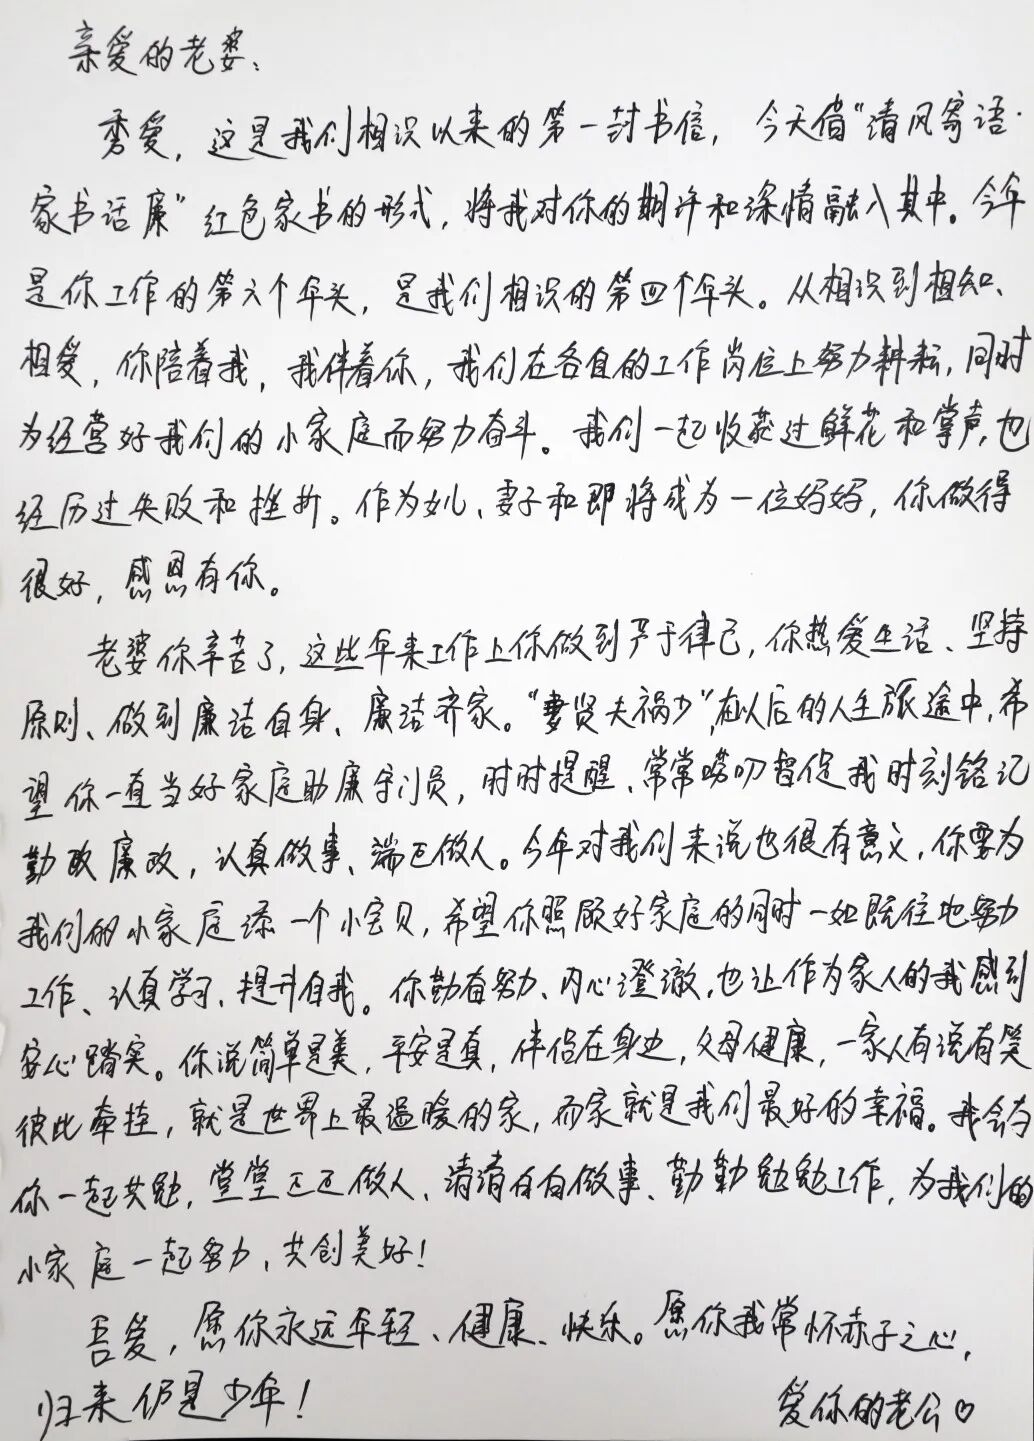 亲爱的老婆:
秀爱，这是我们相识以来的第一封书信，今天借“清风寄语·
家书话廉”红色家书的形式，将我对你的期许和深情融入其中。今年
是你工作的第六个年头，是我们相识的第四个年头。从相识到相知、
相爱，你陪着我，我伴着你，我们在各自的工作岗位上努力耕耘，同时
为经营好我们的小家庭而努力奋斗。我们一起收获过鲜花和掌声，也
经历过失败和挫折。作为女儿、妻子和即将成为一位妈妈，你做得
很好，感恩有你。
老婆你辛苦了，这些年来工作上你做到严于律己，你热爱生活、坚持
原则、做到廉洁自身、廉洁齐家。“妻贤夫祸少”，在以后的人生旅途中，希
望你一直当好家庭助廉守门员，时时提醒、常常唠叨督促我时刻铭记
勤政廉政，认真做事、端正做人。今年对我们来说也很有意义，你要为
我们的小家庭添一个小宝贝，希望你照顾好家庭的同时一如既往地努力
工作、认真学习、提升自我。你勤奋努力、内心澄澈，也让作为家人的我感到
安心踏实。你说简单是美，平安是真，伴侣在身边，父母健康，一家人有说有笑
彼此牵挂，就是世界上最温暖的家，而家就是我们最好的幸福。我会与
你一起共勉，堂堂正正做人、清清白白做事、勤勤勉勉工作，为我们的
小家庭一起努力、共创美好！
吾爱，愿你永远年轻、健康、快乐。愿你我常怀赤子之心，
归来仍是少年！
爱你的老公♡